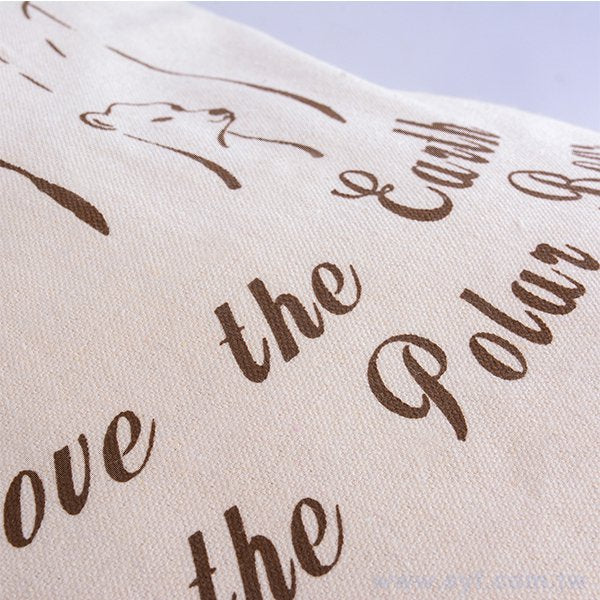 ove the Earth
the Polar Bear
www.syf.com.tw